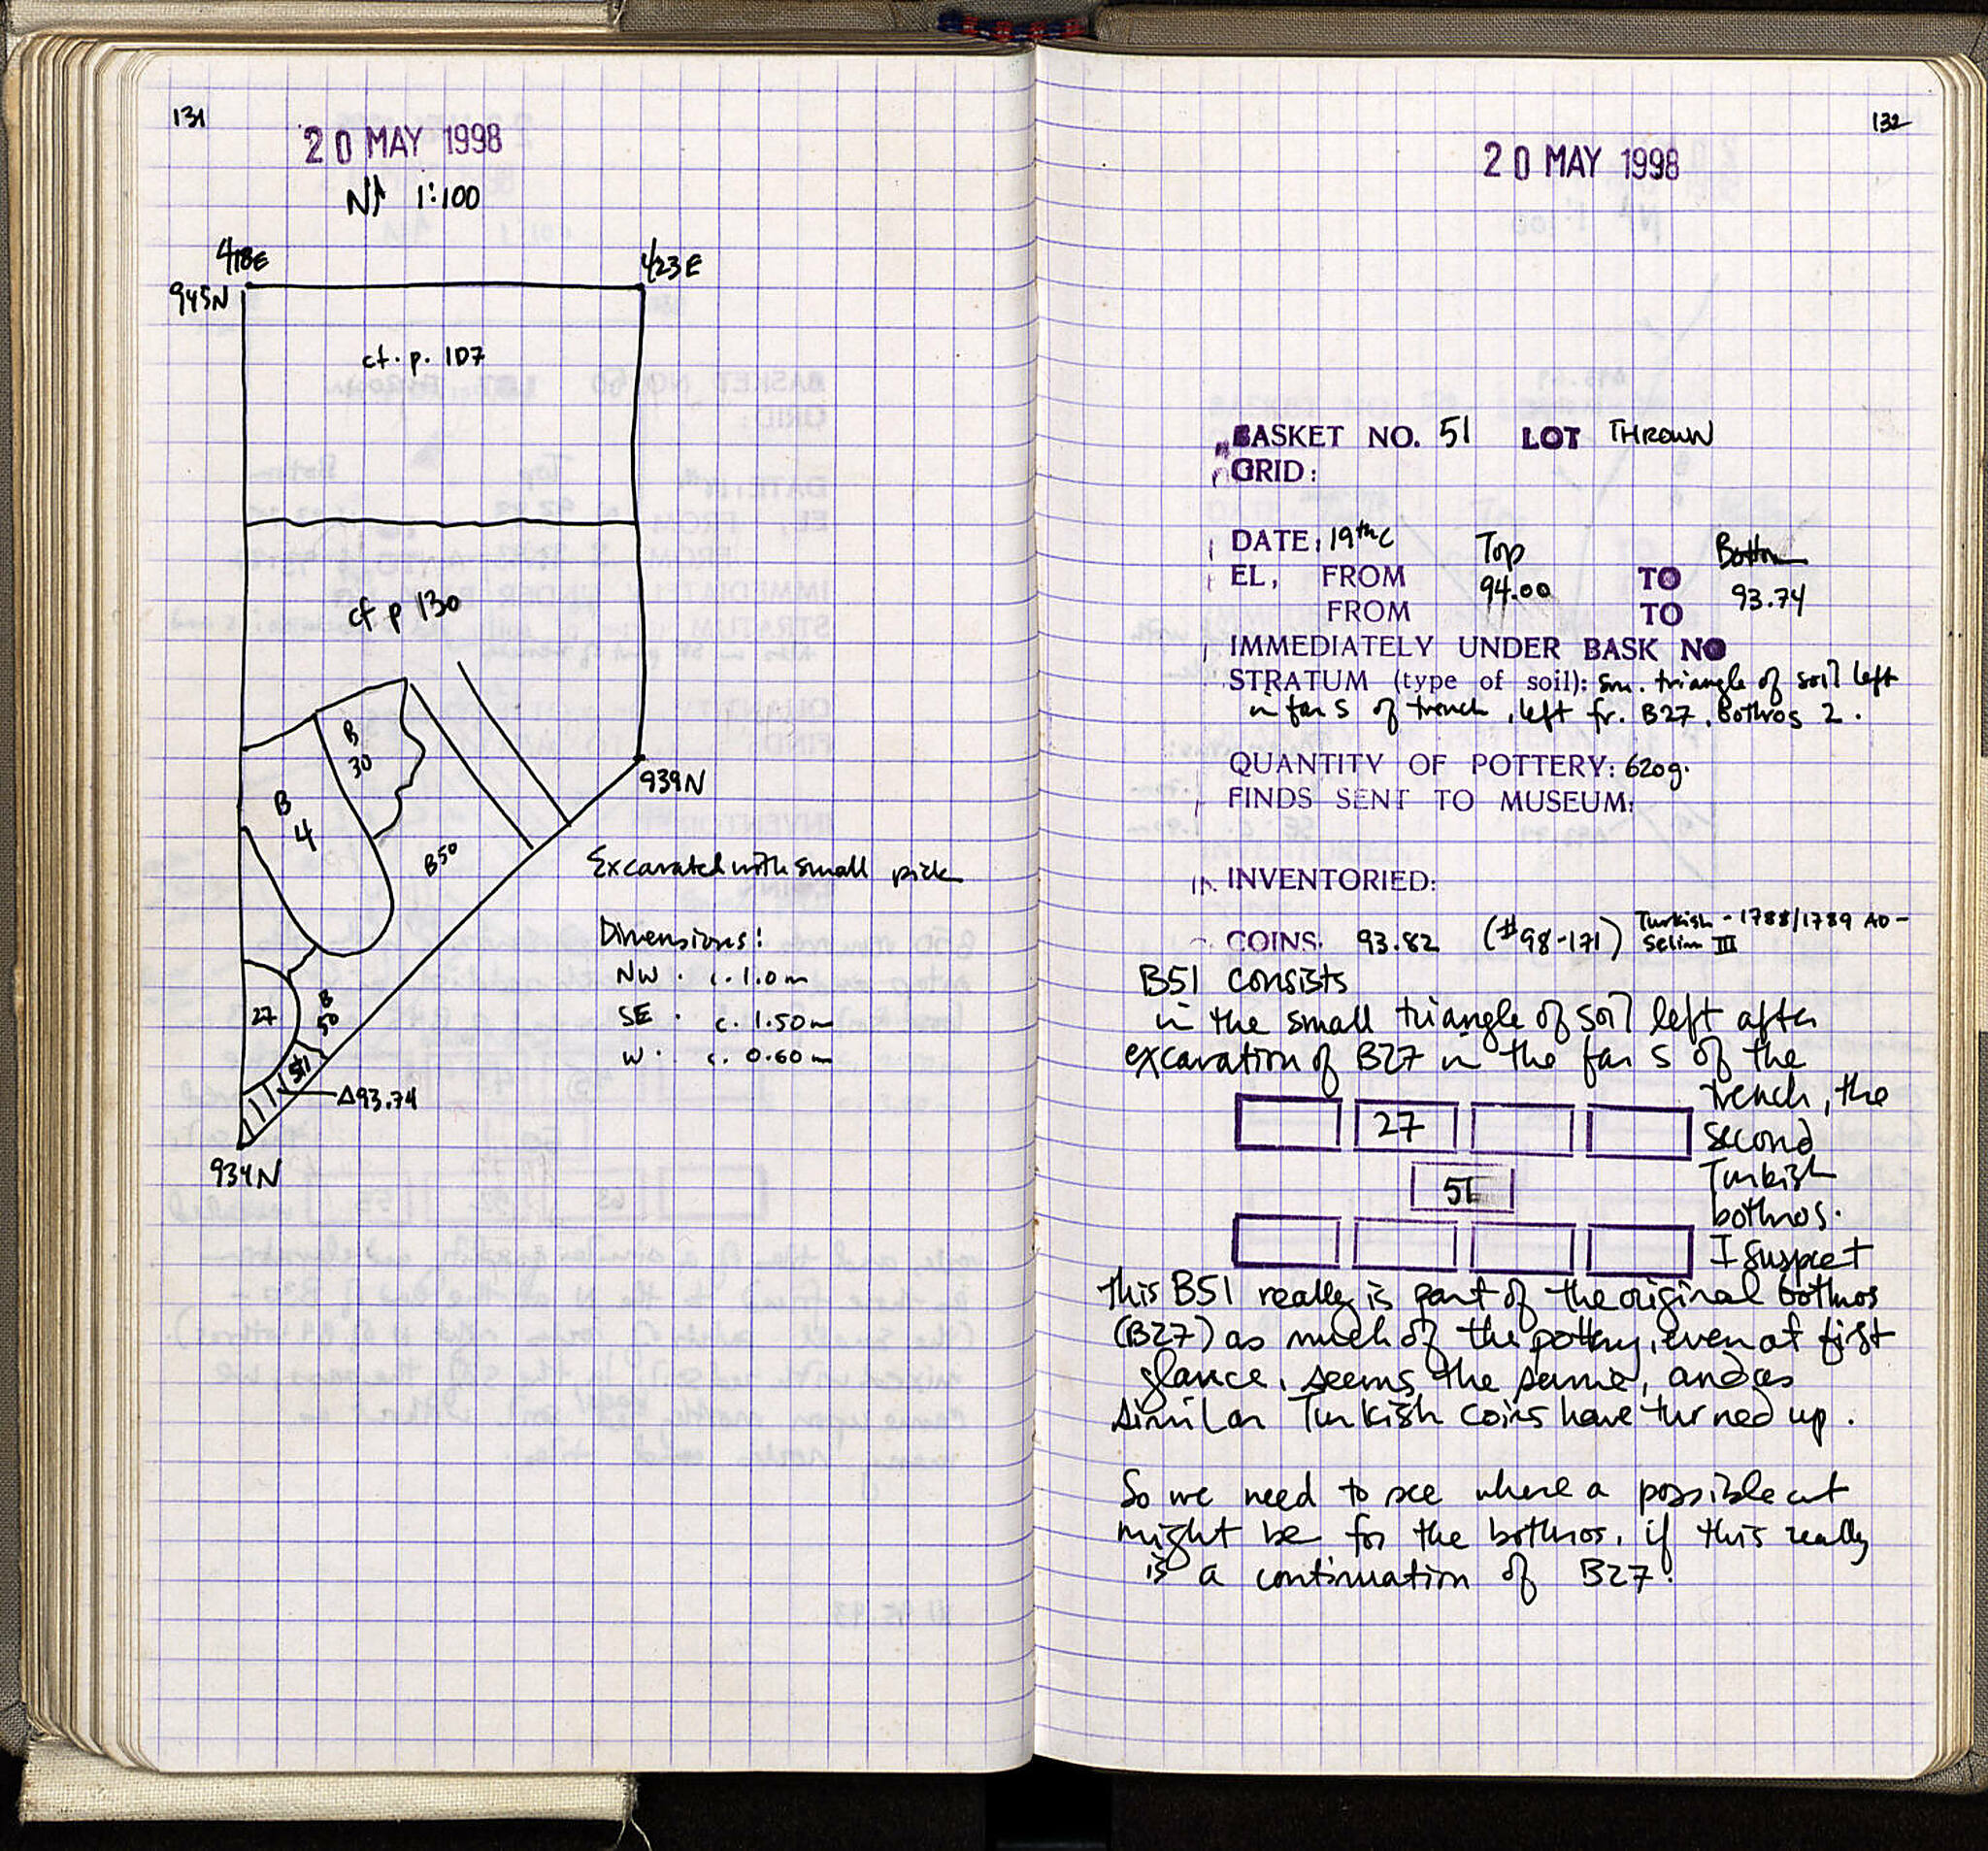 131
20 MAY 1998
N 1:100
418E
423E
945N
cf. p. 107
cf p 130
B
30
B
4
939N
B50
Excavated with small pick
Dimensions:
NW. c. 1.0m
SE. c. 1.50m
W. c. 0.60m
27
B
50
51
Δ93.74
934N
132
20 MAY 1998
BASKET NO. 51 LOT THROWN
GRID:
DATE: 19th C Top Bottom
EL, FROM 94.00 TO 93.74
FROM TO
IMMEDIATELY UNDER BASK NO
STRATUM (type of soil): Sm. triangle of soil left
in far S of trench, left fr. B27, Bothros 2.
QUANTITY OF POTTERY: 620g.
FINDS SENT TO MUSEUM:
INVENTORIED:
COINS. 93.82 (#98-171) Turkish - 1788/1789 AD -
Selim III
B51 consists
in the small triangle of soil left after
excavation of B27 in the far S of the
trench, the
27
second
Turkish
51
bothros.
I suspect
this B51 really is part of the original bothros
(B27) as much of the pottery, even at first
glance, seems the same, and as
similar Turkish coins have turned up.
So we need to see where a possible cut
might be for the bothros, if this really
is a continuation of B27.